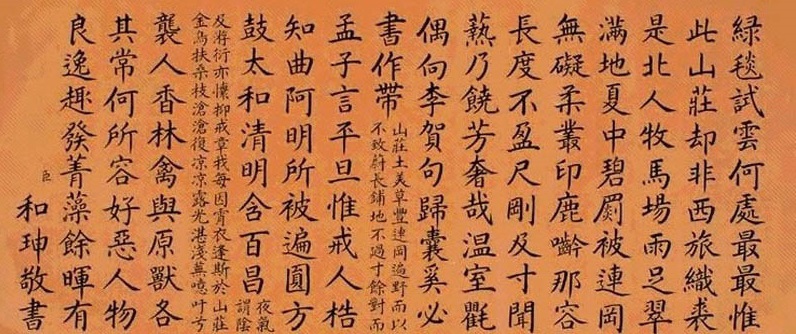 綠毯試雲何處最最惟
此山莊却非西旅織裘
是北人牧馬場雨足翠
滿地夏中碧罽被連岡
無礙柔叢印鹿齡那容
長度不盈尺剛及寸聞
爇乃饒芳奢哉溫室氍
偶向李賀句歸囊奚必
書作帶
山莊土美草豐連岡遍野而以
不致蔚長鋪地不過寸餘對而
孟子言平旦惟戒人梏
知曲阿明所被遍圓方
鼓太和清明含百昌
夜氣
謂陰
及將衍亦懷抑戒章我每因宵衣蓬斯於山莊
金烏扶桑枝滄滄復涼涼露光湛淺無叶
襲人香林禽與原獸各
其常何所容好惡人物
良逸趣發菁藻餘暉有
臣和珅敬書